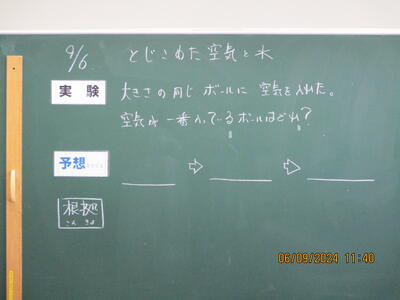 9/6 とじこめた空気と水
実験 大きさの同じボールに空気を入れた。
空気が一番入っているボールはどれ?
予想
根拠
こんきょ
06/09/2024 11:40